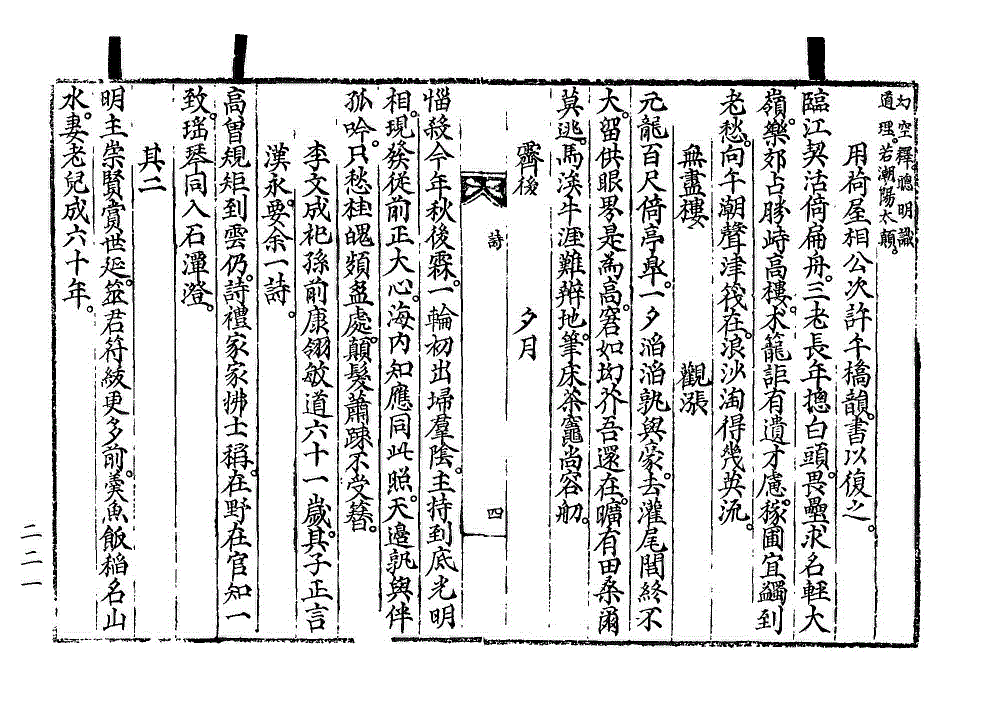 幻空釋聰明識
道理若潮陽太顛。
用荷屋相公次許午橋韻。書以復之。
臨江契活倚扁舟。三老長年摠白頭。畏壘求名輕大
嶺。樂郊占勝峙高樓。朮籠詎有遺才慮。稼圃宜蠲到
老愁。向午潮聲津筏在。浪沙淘得幾英流。
無盡樓 觀漲
元龍百尺倚亭皐。一夕滔滔孰與豪。去灌尾閭終不
大。留供眼界是為高。窘如坳芥吾還在。曠有田桑爾
莫逃。馬涘牛涯難辨地。筆床茶竈尚容舠。
霽後 夕月
詩 四
惱殺今年秋後霖。一輪初出埽羣陰。主持到底光明
相。現發從前正大心。海內知應同此照。天邊孰與伴
孤吟。只愁桂魄頗盈處。顛髮蕭踈不受簪。
李文成祀孫前康翎敏道六十一歲。其子正言
漢永。要余一詩。
高曾規矩到雲仍。詩禮家家拂士稱。在野在官知一
致。瑤琴同入石潭澄。
其二
明主崇賢賞世延。筮君符紱更多前。羹魚飯稻名山
水。妻老兒成六十年。
二二一